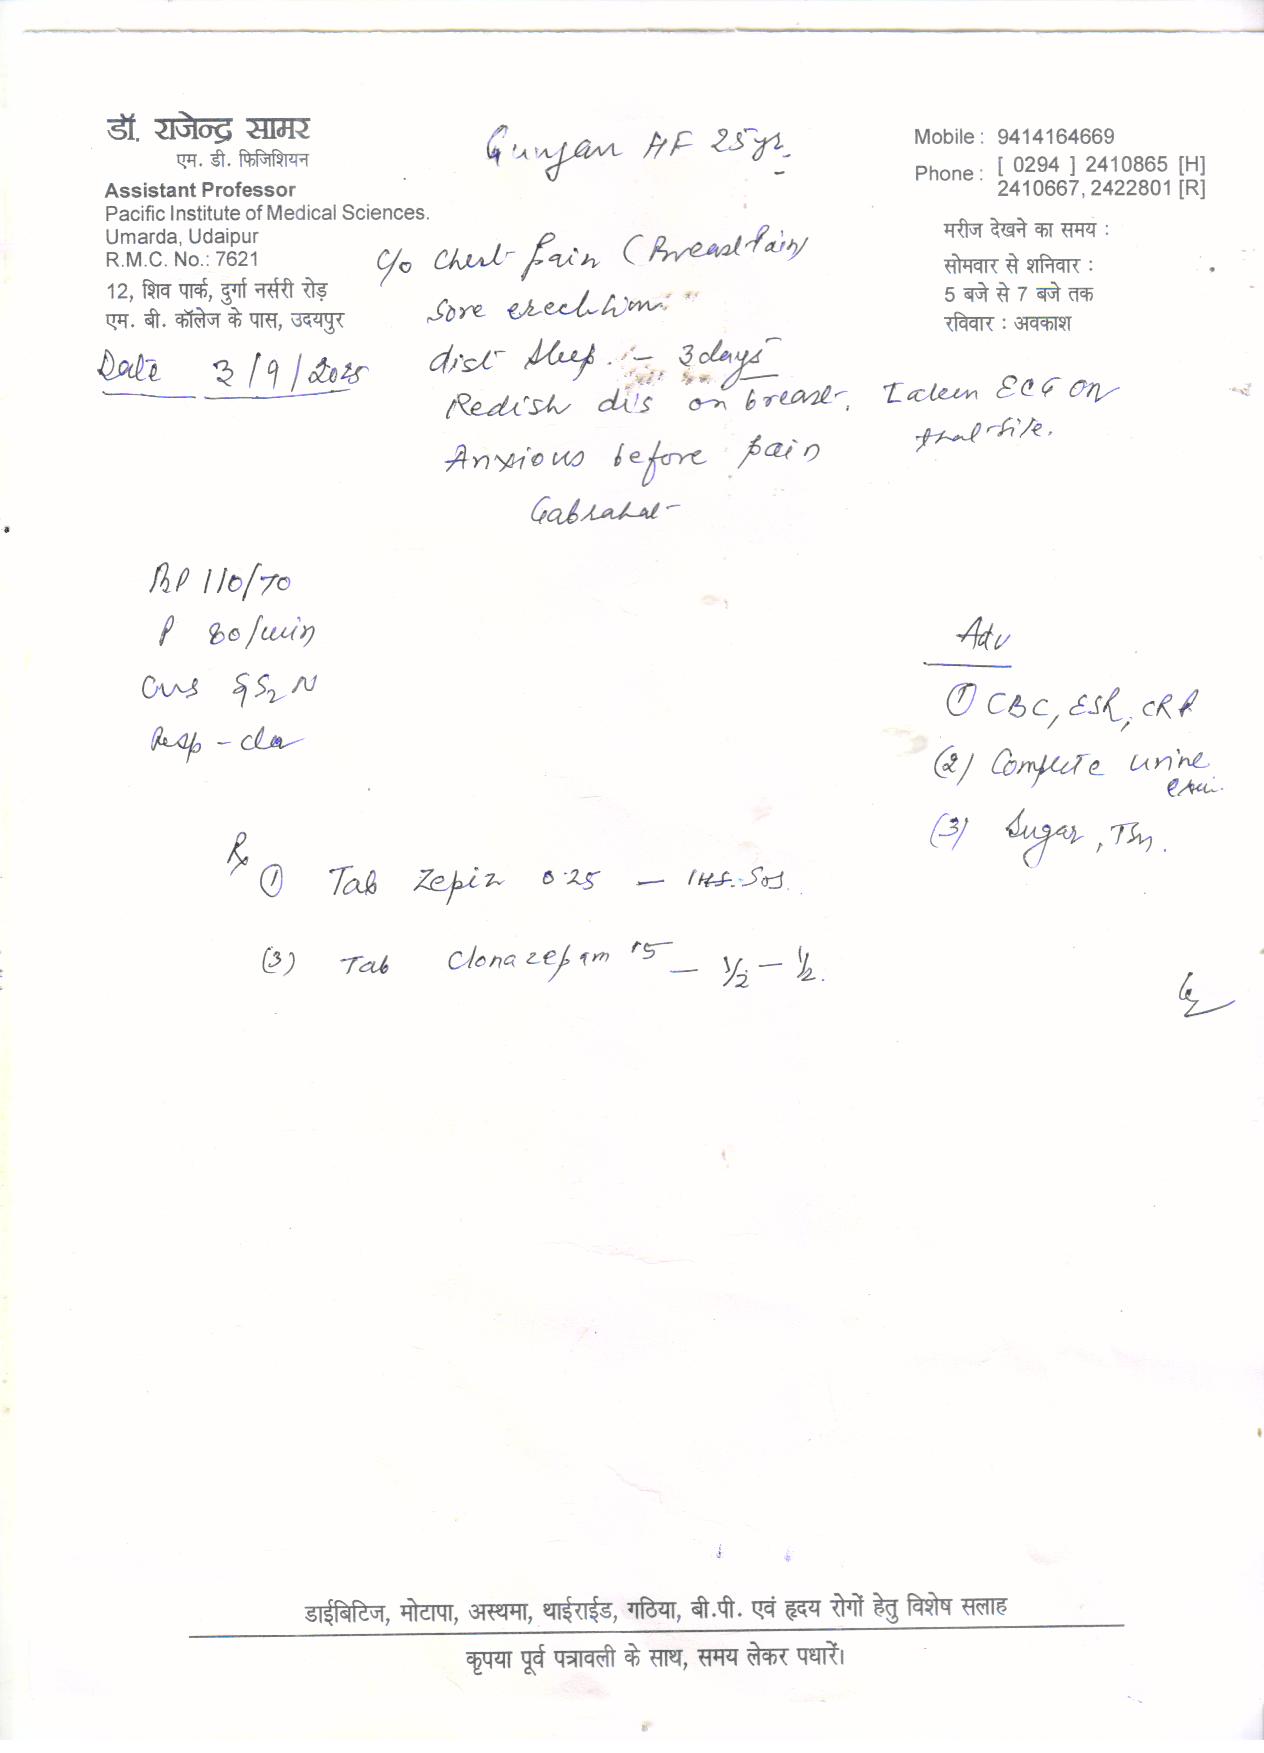 डॉ. राजेन्द्र सामर
एम. डी. फिजिशियन
Assistant Professor
Pacific Institute of Medical Sciences.
Umarda, Udaipur
R.M.C. No.: 7621
12, शिव पार्क, दुर्गा नर्सरी रोड़
एम. बी. कॉलेज के पास, उदयपुर
Date 3/9/2025
Gunjan AF 25yr.
Mobile : 9414164669
Phone : [ 0294 ] 2410865 [H]
2410667, 2422801 [R]
मरीज देखने का समय :
सोमवार से शनिवार :
5 बजे से 7 बजे तक
रविवार : अवकाश
c/o Chest pain (Breast Pain)
Sore
dist sleep. - 3 days
Redish dis on breast. Taken ECG on
that site.
Anxious before pain
Gabrahat
BP 110/70
P 80/min
CVS S1S2 N
Resp - clear
Adv
(1) CBC, ESR, CRP
(2) Complete urine
exam.
(3) Sugar, TSH.
Rx
(1) Tab Zepiz 0.25 — 1 HS. SOS.
(3) Tab Clonazepam — 1/2 — 1/2.
डाईबिटिज, मोटापा, अस्थमा, थाईराईड, गठिया, बी.पी. एवं हृदय रोगों हेतु विशेष सलाह
कृपया पूर्व पत्रावली के साथ, समय लेकर पधारें।